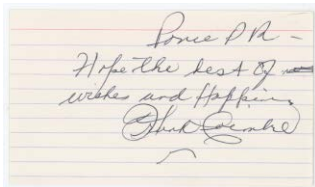 Ponce P R -
Hope the best of
wishes and Happin